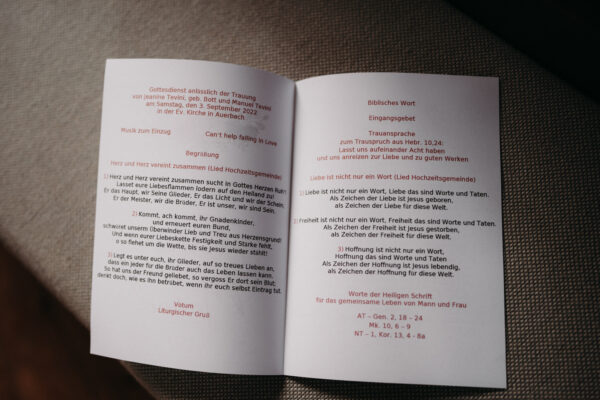 Gottesdienst anlässlich der Trauung
von Jeanine Tevini, geb. Bott und Manuel Tevini
am Samstag, den 3. September 2022
in der Ev. Kirche in Auerbach
Musik zum Einzug Can't help falling in Love
Begrüßung
Herz und Herz vereint zusammen (Lied Hochzeitsgemeinde)
1) Herz und Herz vereint zusammen sucht in Gottes Herzen Ruh'!
Lasset eure Liebesflammen lodern auf den Heiland zu!
Er das Haupt, wir Seine Glieder, Er das Licht und wir der Schein,
Er der Meister, wir die Brüder, Er ist unser, wir sind Sein.
2) Kommt, ach kommt, ihr Gnadenkinder,
und erneuert euren Bund,
schwöret unserm Überwinder Lieb und Treu aus Herzensgrund!
Und wenn eurer Liebeskette Festigkeit und Stärke fehlt,
o so flehet um die Wette, bis sie Jesus wieder stählt!
3) Legt es unter euch, ihr Glieder, auf so treues Lieben an,
dass ein jeder für die Brüder auch das Leben lassen kann.
So hat uns der Freund geliebet, so vergoss Er dort sein Blut;
denkt doch, wie es Ihn betrübet, wenn ihr euch selbst Eintrag tut.
Votum
Liturgischer Gruß
Biblisches Wort
Eingangsgebet
Trauansprache
zum Trauspruch aus Hebr. 10,24:
Lasst uns aufeinander Acht haben
und uns anreizen zur Liebe und zu guten Werken
Liebe ist nicht nur ein Wort (Lied Hochzeitsgemeinde)
1) Liebe ist nicht nur ein Wort, Liebe das sind Worte und Taten.
Als Zeichen der Liebe ist Jesus geboren,
als Zeichen der Liebe für diese Welt.
2) Freiheit ist nicht nur ein Wort, Freiheit das sind Worte und Taten.
Als Zeichen der Freiheit ist Jesus gestorben,
als Zeichen der Freiheit für diese Welt.
3) Hoffnung ist nicht nur ein Wort,
Hoffnung das sind Worte und Taten
Als Zeichen der Hoffnung ist Jesus lebendig,
als Zeichen der Hoffnung für diese Welt.
Worte der Heiligen Schrift
für das gemeinsame Leben von Mann und Frau
AT – Gen. 2, 18 – 24
Mk. 10, 6 – 9
NT – 1, Kor. 13, 4 - 8a